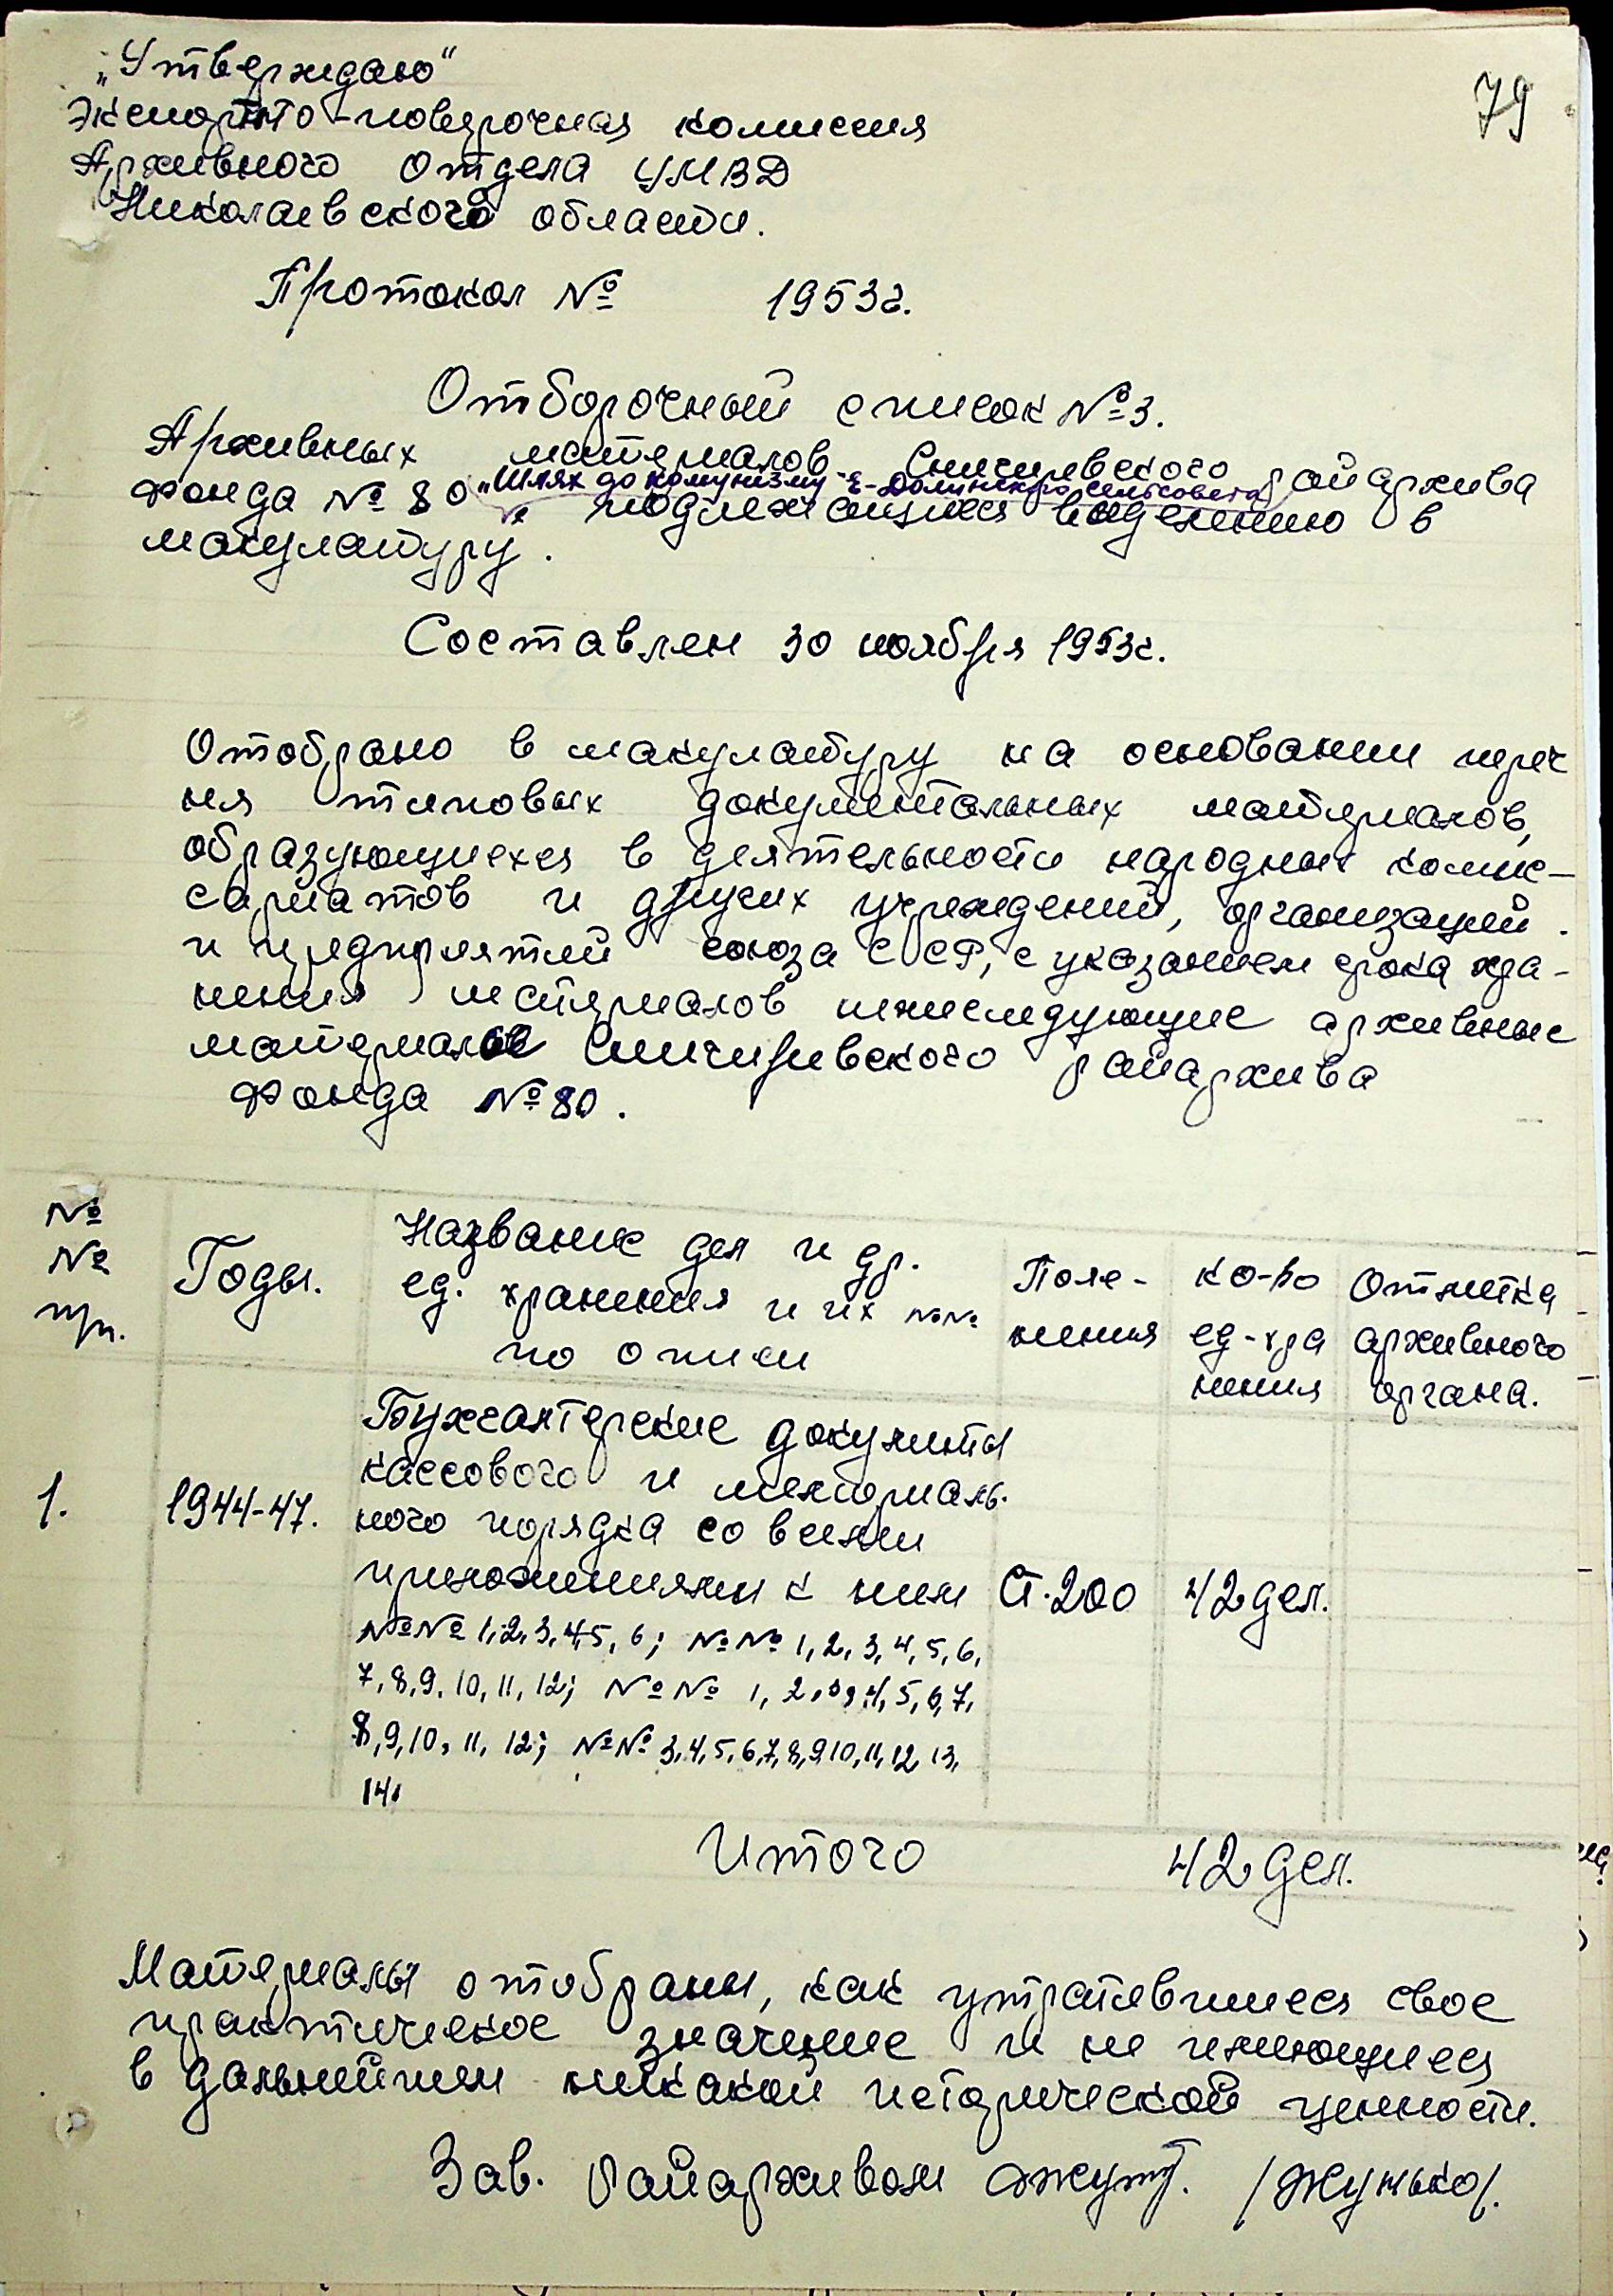 79
„Утверждаю“
Экспертно-поверочная комиссия
Архивного отдела УМВД
Николаевского области.
Протокол № 1953г.
Отборочный список №3.
Архивных материалов Снигиревского райархива
„Шлях до комунізму" Є-Долинского сельсовета
фонда № 80 подлежащиеся выделению в
макулатуру.
Составлен 30 ноября 1953г.
Отобрано в макулатуру на основании переч
ня типовых документальных материалов,
образующиехся в деятельности народных комис-
сариатов и других учреждений, организаций.
и предприятий союза ССР, с указанием срока хра-
нения материалов нижеследующие архивные
материалы Снигиревского райархива
фонда № 80.
№ № пп. Годы. Название дел и др. ед. хранения и их №№ по описи Пояс- нения ко-во ед-хра нения Отметка архивного органа.
Бухгалтерские документы
кассового и мемориаль.
1. 1944-47. ного порядка со всеми
приложениями к ним Ст.200 42 дел.
№№ 1,2,3,4,5,6; №№ 1,2,3,4,5,6,
7,8,9,10,11,12; №№ 1,2,3,4,5,6,7,
8,9,10,11,12; №№ 3,4,5,6,7,8,9,10,11,12,13,
14.
Итого 42 дел.
Материалы отобраны, как утратившиеся свое
практическое значение и не имеющиеся
в дальнейшем никакой исторической ценности.
Зав. Райархивом /Жунько/.